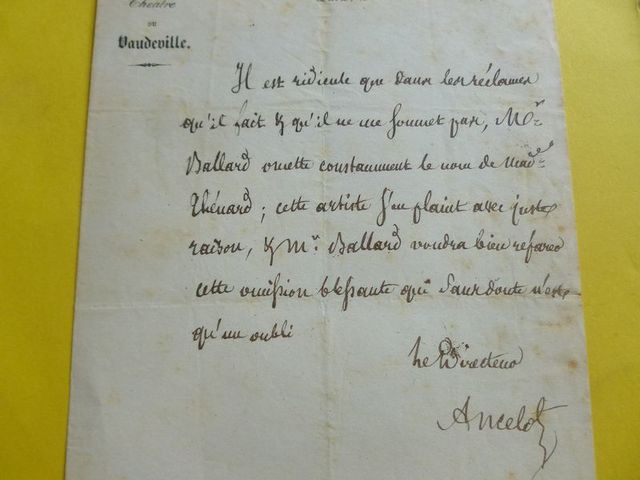 Théatre
DU
Vaudeville.
Il est ridicule que dans les réclames
qu'il fait & qu'il ne me soumet pas, Mr
Ballard omette constamment le nom de Made
Thénard ; cette artiste s'en plaint avec juste
raison, & Mr. Ballard voudra bien réparer
cette omission blessante qui sans doute n'est
qu'un oubli
Le Directeur
Ancelot